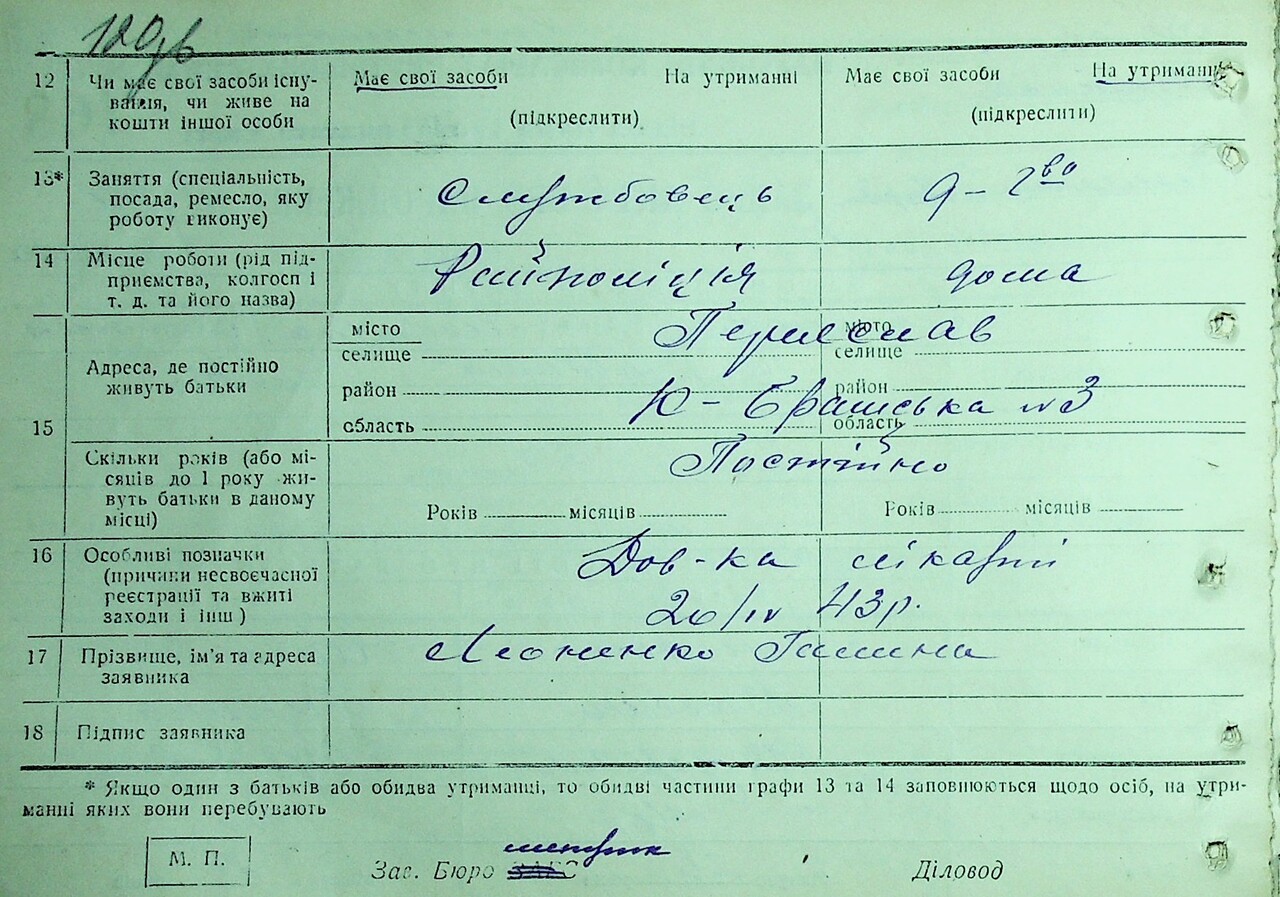 12 Чи має свої засоби існу- Має свої засоби На утриманні Має свої засоби На утриманні
вання, чи живе на
кошти іншої особи (підкреслити) (підкреслити)
13* Заняття (спеціальність, Службовець д-г во
посада, ремесло, яку
роботу виконує)
14 Місце роботи (рід під- Райполіція дома
приємства, колгосп і
т. д. та його назва)
15 Адреса, де постійно
живуть батьки
місто Переяслав місто
селище селище
район район
Ю-Брашська №3
область область
Скільки років (або мі- Постійно
сяців до 1 року жи-
вуть батьки в даному
місці) Років місяців Років місяців
16 Особливі позначки Дов-ка лікарні
(причини несвоєчасної
реєстрації та вжиті 20/IV 43р.
заходи і інш)
17 Прізвище, ім'я та адреса Галина
заявника
18 Підпис заявника
* Якщо один з батьків або обидва утриманці, то обидві частини графи 13 та 14 заповнюються щодо осіб, на утри-
манні яких вони перебувають
метрик
М. П. Зав. Бюро ЗАГС Діловод